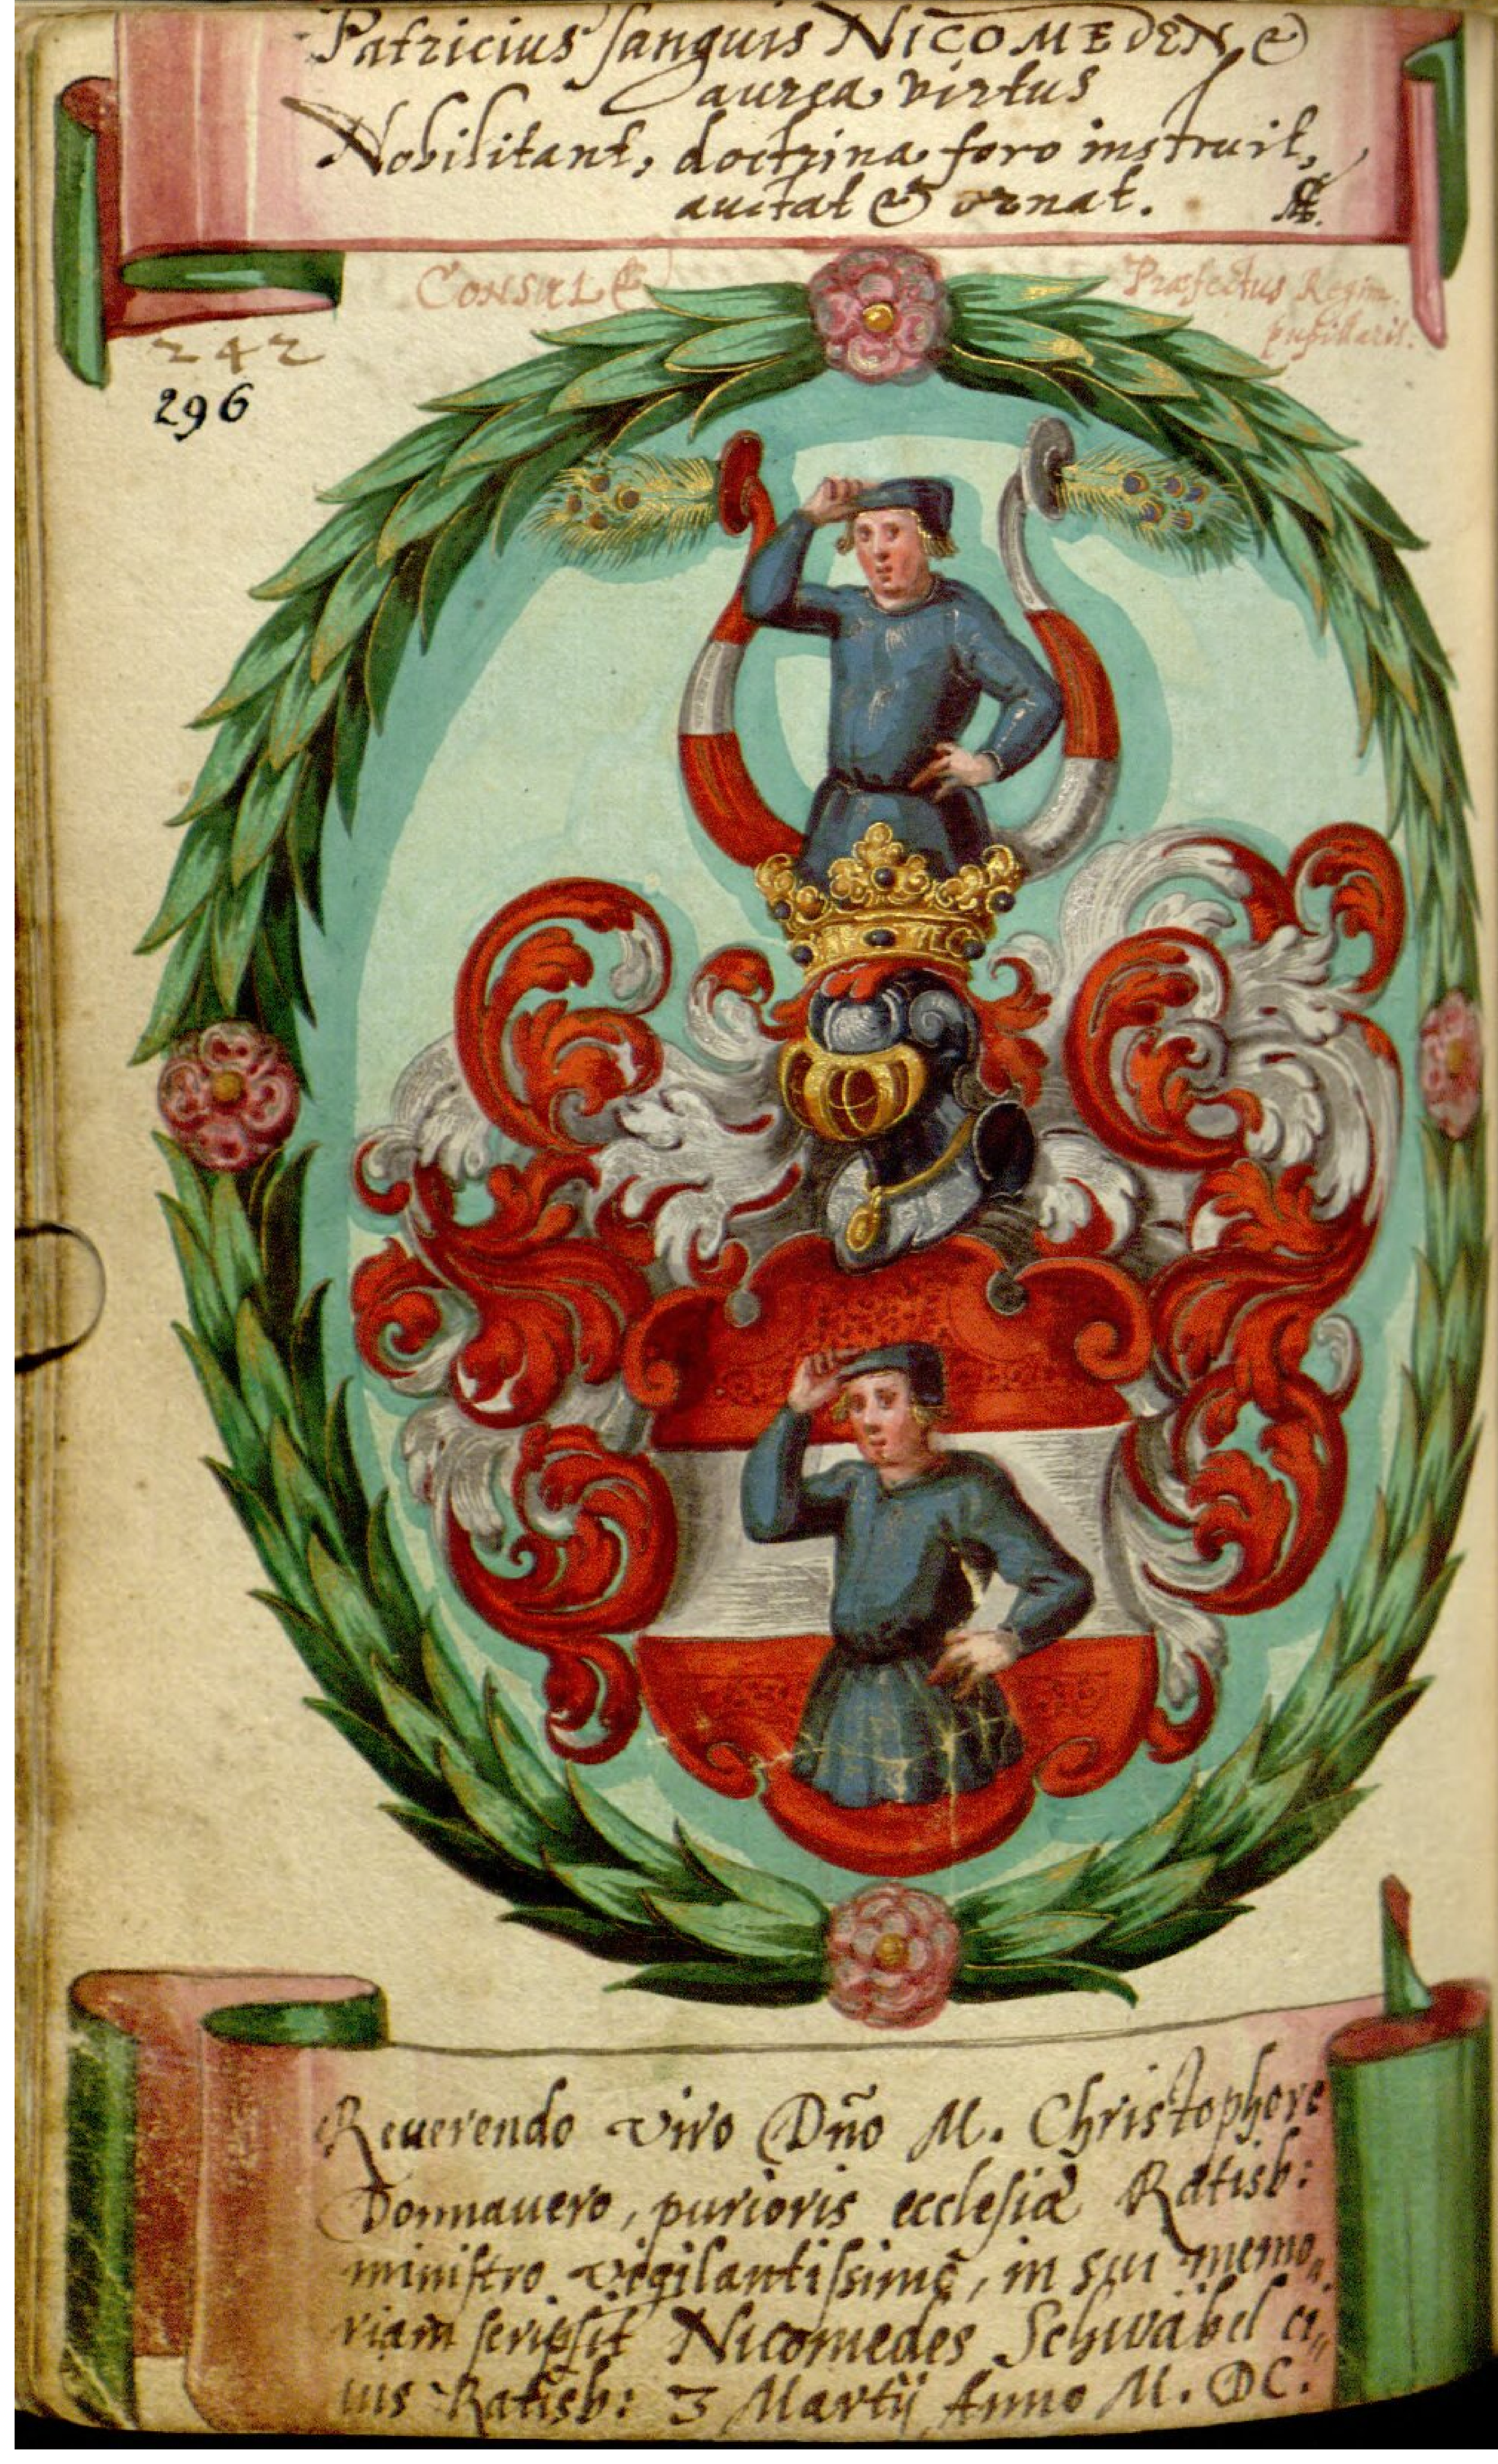 Patricius sanguis NICOMEDEN &
aurea virtus
Nobilitant, doctrina foro instruit,
auctat & ornat.
CONSUL &
Præfectus Regim.
pupillaris.
242
296
Reuerendo viro Dño M. Christophoro
Donnauero, purioris ecclesiæ Ratisb:
ministro vigilantissimo, in sui memo„
riam scripsit Nicomedes Schwäbel ci„
uis Ratisb: 3 Martij Anno M. DC.